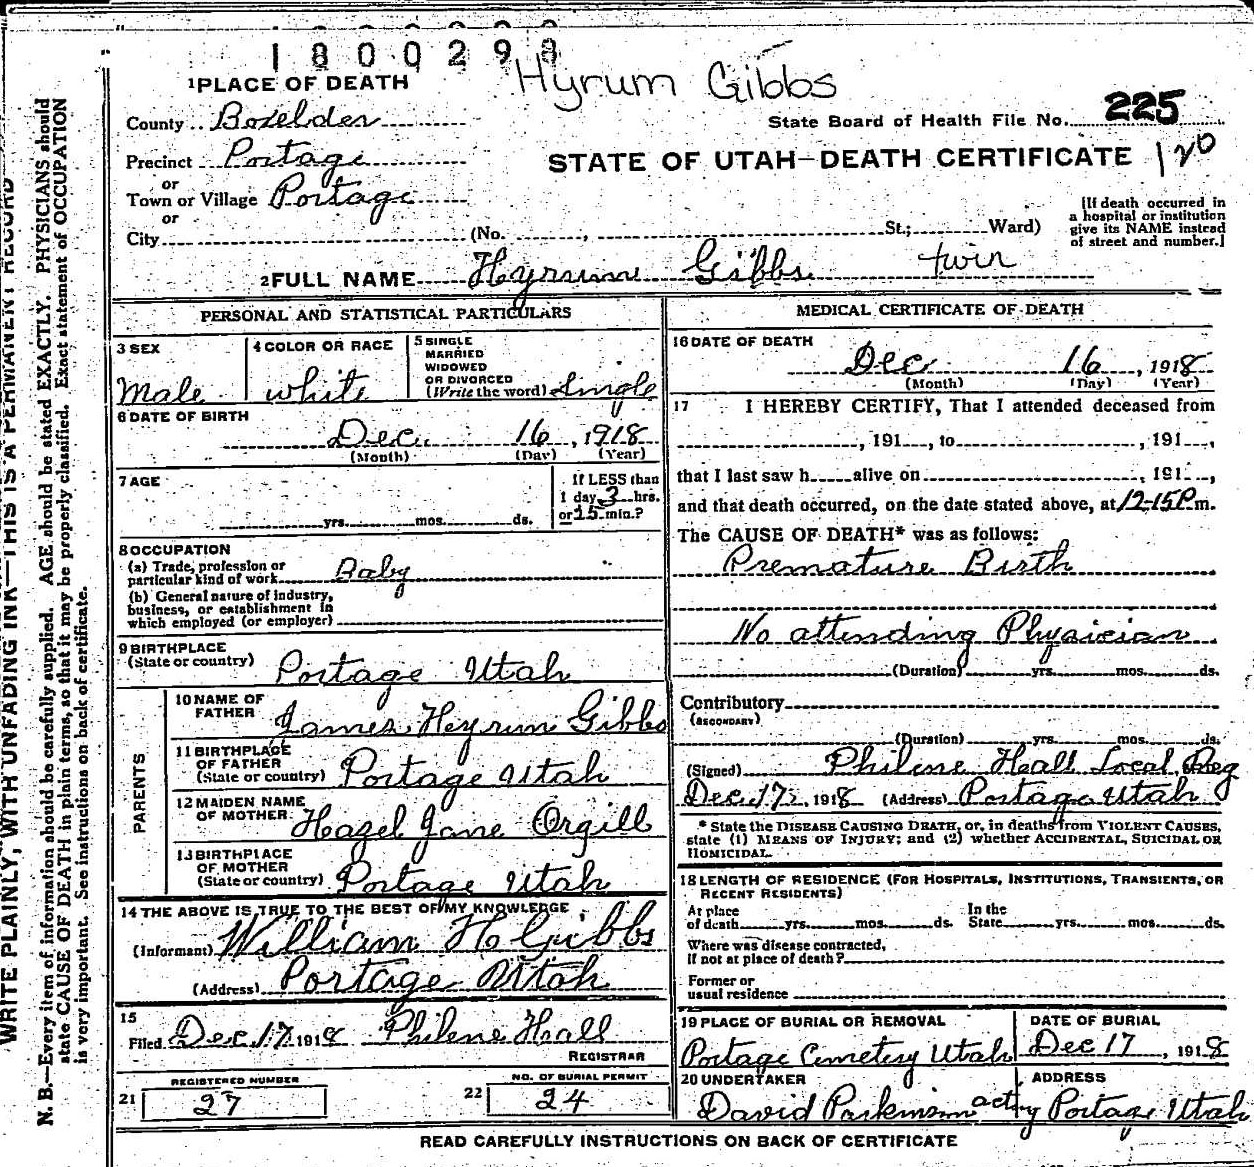 1800298
Hyrum Gibbs
1 PLACE OF DEATH
County.. Boxelder
State Board of Health File No. 225
Precinct Portage
STATE OF UTAH—DEATH CERTIFICATE 120
or
Town or Village Portage
or
City (No. , St.; Ward)
[If death occurred in
a hospital or institution
give its NAME instead
of street and number.]
2 FULL NAME Hyrum Gibbs twin
PERSONAL AND STATISTICAL PARTICULARS
3 SEX
Male
4 COLOR OR RACE
white
5 SINGLE
MARRIED
WIDOWED
OR DIVORCED
(Write the word) Single
6 DATE OF BIRTH
Dec. 16, 1918
(Month) (Day) (Year)
7 AGE
yrs. mos. ds.
If LESS than
1 day 3 hrs.
or 15 min.?
8 OCCUPATION
(a) Trade, profession or
particular kind of work Baby
(b) General nature of industry,
business, or establishment in
which employed (or employer)
9 BIRTHPLACE
(State or country) Portage Utah
PARENTS
10 NAME OF
FATHER James Hyrum Gibbs
11 BIRTHPLACE
OF FATHER
(State or country) Portage Utah
12 MAIDEN NAME
OF MOTHER Hazel Jane Orgill
13 BIRTHPLACE
OF MOTHER
(State or country) Portage Utah
14 THE ABOVE IS TRUE TO THE BEST OF MY KNOWLEDGE
(Informant) William H Gibbs
(Address) Portage Utah
15
Filed Dec. 17, 1918 Philene Hall
REGISTRAR
REGISTERED NUMBER
21 27
NO. OF BURIAL PERMIT
22 24
MEDICAL CERTIFICATE OF DEATH
16 DATE OF DEATH
Dec 16, 1918
(Month) (Day) (Year)
17 I HEREBY CERTIFY, That I attended deceased from
, 191 , to , 191 ,
that I last saw h alive on , 191 ,
and that death occurred, on the date stated above, at 12-15 P m.
The CAUSE OF DEATH* was as follows:
Premature Birth
No attending Physician
(Duration) yrs. mos. ds.
Contributory
(SECONDARY)
(Duration) yrs. mos. ds.
(Signed) Philene Hall Local Reg
Dec. 17, 1918 (Address) Portage Utah
* State the DISEASE CAUSING DEATH, or, in deaths from VIOLENT CAUSES,
state (1) MEANS OF INJURY; and (2) whether ACCIDENTAL, SUICIDAL OR
HOMICIDAL.
18 LENGTH OF RESIDENCE (FOR HOSPITALS, INSTITUTIONS, TRANSIENTS, OR
RECENT RESIDENTS)
At place
of death yrs. mos. ds.
In the
State yrs. mos. ds.
Where was disease contracted,
if not at place of death?
Former or
usual residence
19 PLACE OF BURIAL OR REMOVAL
Portage Cemetery Utah
DATE OF BURIAL
Dec 17, 1918
20 UNDERTAKER
David Parkinson acting
ADDRESS
Portage Utah
READ CAREFULLY INSTRUCTIONS ON BACK OF CERTIFICATE
WRITE PLAINLY, WITH UNFADING INK—THIS IS A PERMANENT RECORD
N. B.—Every item of information should be carefully supplied. AGE should be stated EXACTLY. PHYSICIANS should
state CAUSE OF DEATH in plain terms, so that it may be properly classified. Exact statement of OCCUPATION
is very important. See instructions on back of certificate.